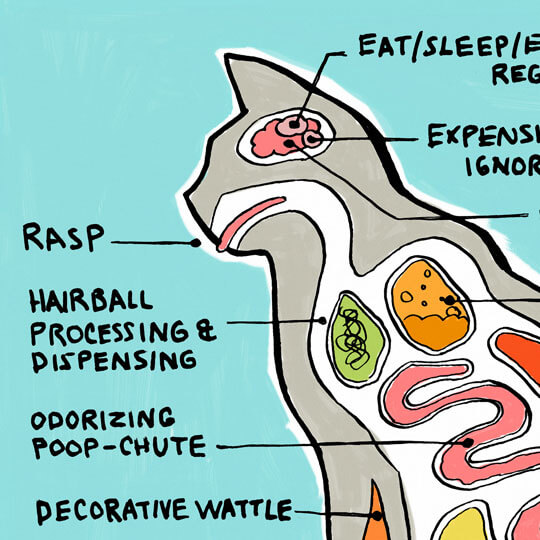 EAT/SLEEP/E
REG
EXPENSI
IGNOR
RASP
HAIRBALL
PROCESSING &
DISPENSING
ODORIZING
POOP-CHUTE
DECORATIVE WATTLE